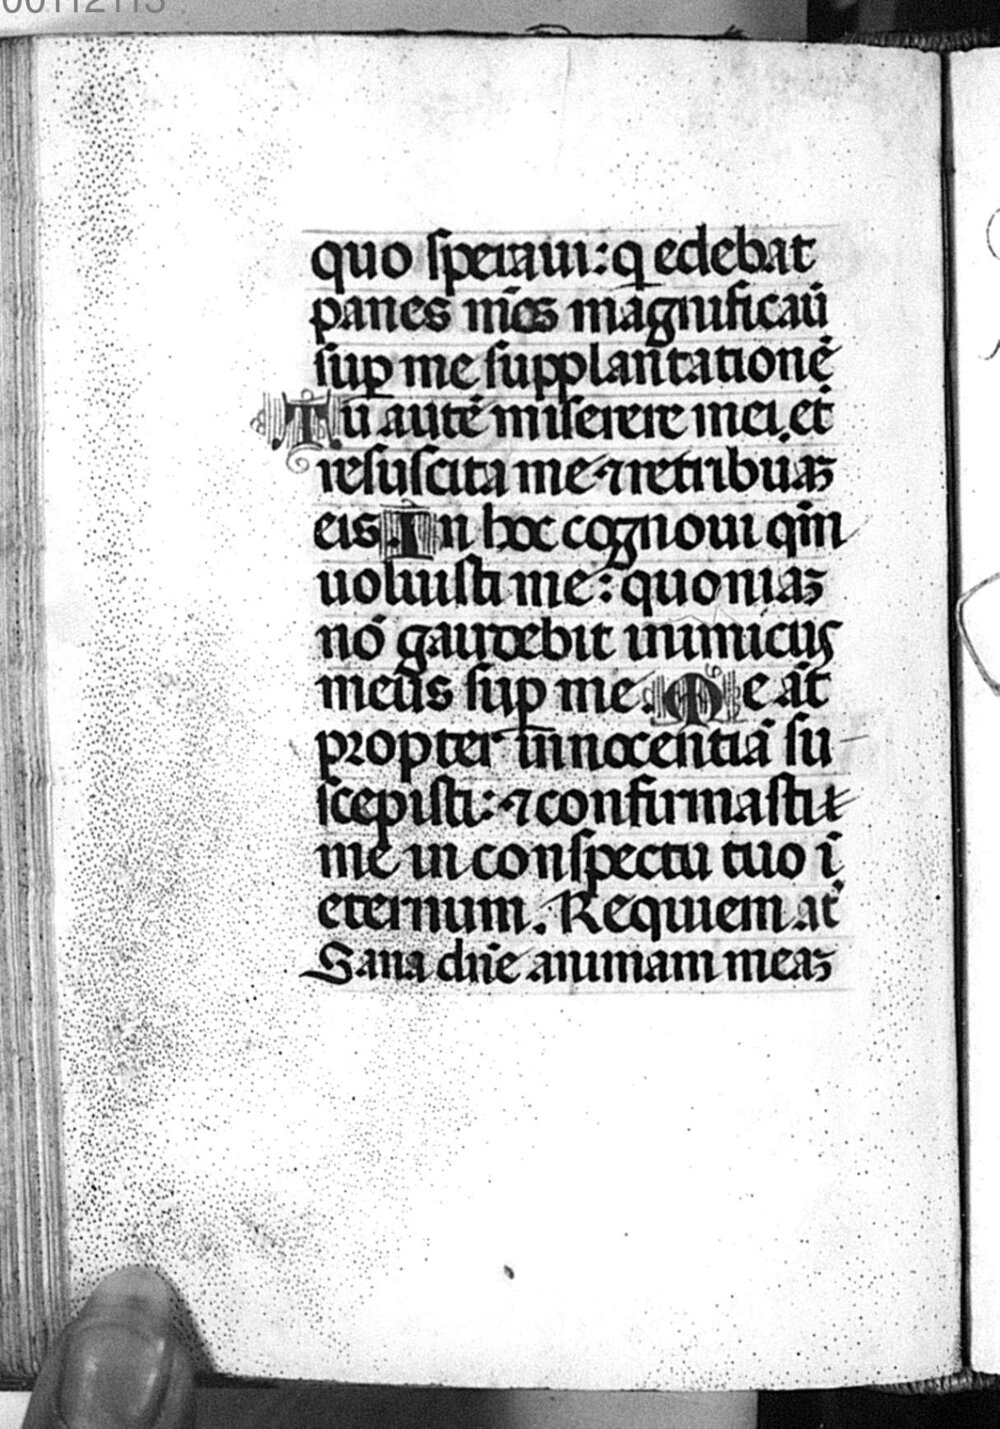 00112113
quo speraui: q edebat
panes mēos magnificaū
sup me supplantationē
Tū autē miserere mei. et
resuscita me ⁊ retribuaꝫ
eis. In hoc cognoui qm̄
uoluisti me: quoniaꝫ
nō gaudebit inimicus
meus sup me. Me aūt
propter innocentiā su
scepisti: ⁊ confirmasti
me in conspectu tuo ī
eternum. Requiem at̄
Sana dn̄e animam meaꝫ